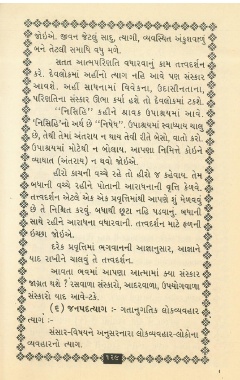 જોઇએ. જીવન જેટલું સાદું, ત્યાગી, વ્યવસ્થિત અંકુશવાળું
બને તેટલી સમાધિ વધુ મળે.
સતત આત્મપરિણતિ વધારવાનું કામ તત્ત્વદર્શન
કરે. દેવલોકમાં અહીંનો ત્યાગ નહિ આવે પણ સંસ્કાર
આવશે. અહીં સાધનામાં વિવેકના, ઉદાસીનતાના,
પરિણતિના સંસ્કાર ઊભા કર્યા હશે તો દેવલોકમાં ટકશે.
"નિસિહિ" કહીને શ્રાવક ઉપાશ્રયમાં આવે.
'નિસિહિ'નો અર્થ છે "નિષેધ". ઉપાશ્રયમાં સ્વાધ્યાય ચાલુ
છે, તેથી તેમાં અંતરાય ન થાય તેવી રીતે બેસો, વાતો કરો.
ઉપાશ્રયમાં મોટેથી ન બોલાય. આપણા નિમિત્તે કોઇને
વ્યાઘાત (અંતરાય) ન થવો જોઇએ.
હીરો કાચની વચ્ચે રહે તો હીરો જ કહેવાય. તેમ
બધાની વચ્ચે રહીને પોતાની આરાધનાની વૃત્તિ કેળવે.
તત્ત્વદર્શન એટલે એક એક પ્રવૃત્તિમાંથી આપણે શું મેળવવું
છે તે નિશ્ચિત કરવું. બધાથી છૂટા નહિ પડવાનું. બધાની
સાથે રહીને આરાધના વધારવાની. તત્ત્વદર્શન માટે ફળની
ઇચ્છા જોઇએ.
દરેક પ્રવૃત્તિમાં ભગવાનની આજ્ઞાનુસાર, આજ્ઞાને
યાદ રાખીને ચાલવું તે તત્ત્વદર્શન.
આવતા ભવમાં આપણા આત્મામાં કયા સંસ્કાર
જાગ્રત થશે ? રસવાળા સંસ્કારો, આદરવાળા, ઉપયોગવાળા
સંસ્કારો યાદ આવે-ટકે.
(૬) જનપદત્યાગ :- ગતાનુગતિક લોકવ્યવહાર
ત્યાગ :-
સંસાર-વિષયને અનુસરનારા લોકવ્યવહાર-લોકોના
વ્યવહારનો ત્યાગ.